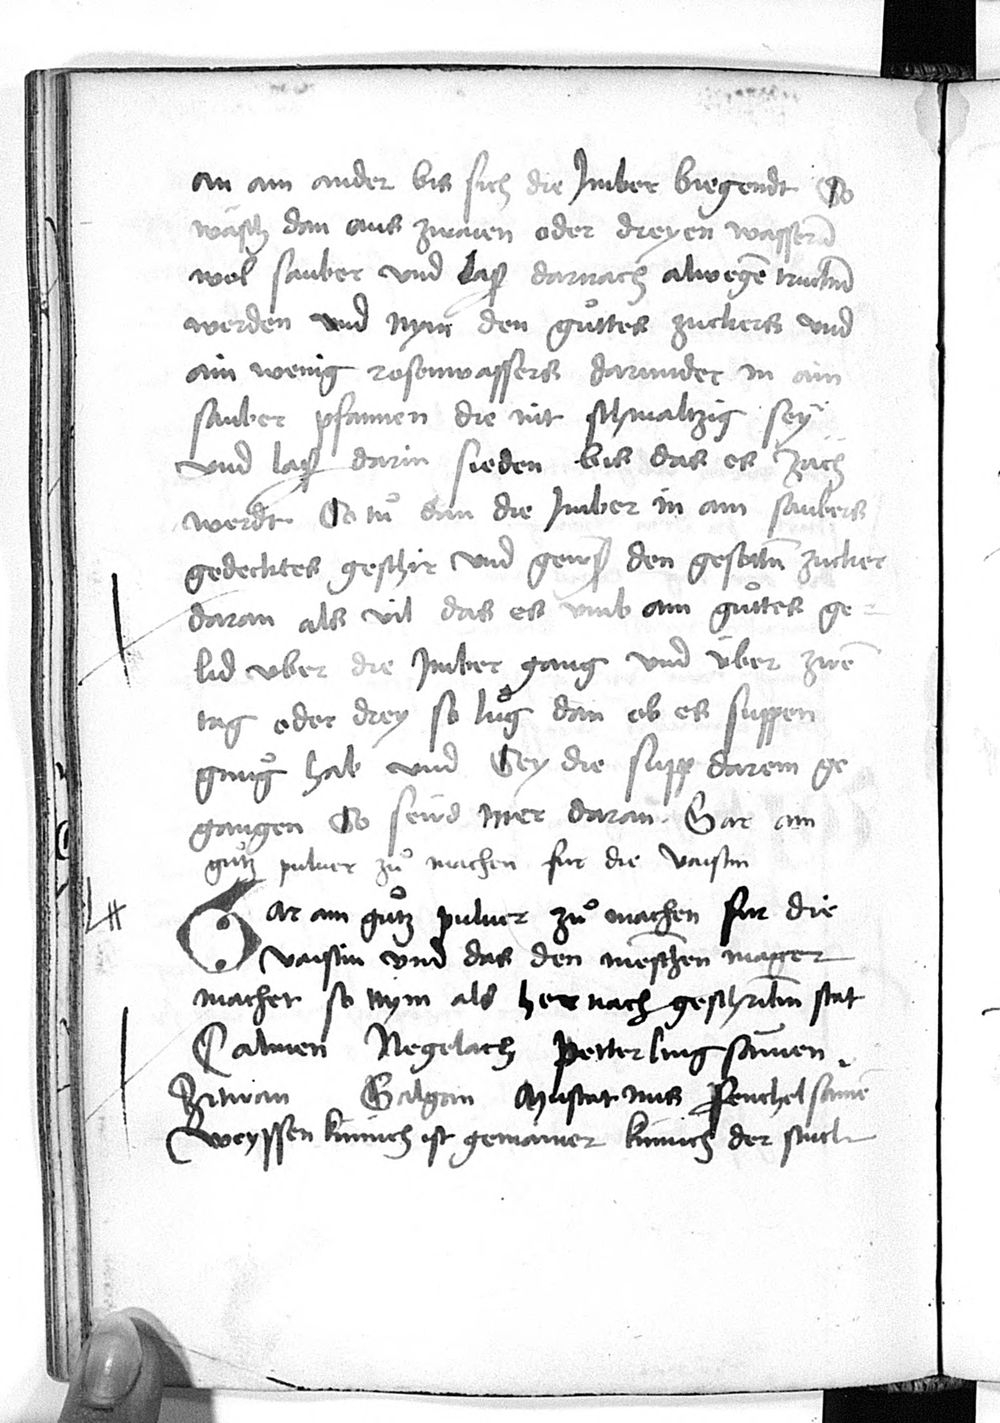 an ain ander bis sich die Jmber biegendt So
wäsch dan aus zwaien oder dreyen wasserñ
wol sauber vnd laß darnach alwegē truckñ
werden vnd nym den gůttes zuckers vnd
ain wenig rosenwassers darunder in ain
sauber pfannen die nit schmaltzig sey
vnd laß darin sieden bis das es zäch
werdt So tů dan die Jmber in ain saubers
gedecktes geschir vnd geuß den gesottñ zucker
daran als vil das es vmb ain gůttes ge-
lid vber die Jmber gang vnd über zwē
tag oder drey so lůg dan ob es suppen
gnůg hab vnd Sey die supp darein ge
gangen So seud mer daran. Gar ain
gůtz puluer zů machen fur die
Gar ain gůtz puluer zů machen fur die
vnd das den meschen mager
machet so nym als her nach geschribñ stat
Calmen Negelach petterling samen
Zitwan Galgan Muscat nus fenchel samē
weyssen kümich ist gemainer kümich der stuck